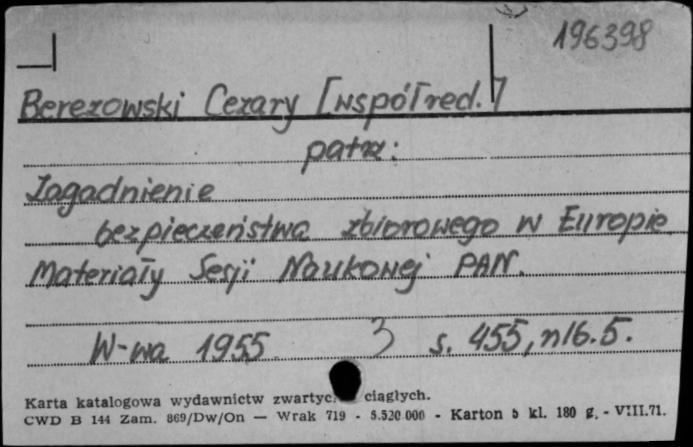 196398
Berezowski Cezary [współred.]
patrz:
Zagadnienie
bezpieczeństwa zbiorowego w Europie
Materiały Sesji Naukowej PAN.
W-wa 1955 s. 455, nlb. 5.
Karta katalogowa wydawnictw zwartyc ciągłych.
CWD B 144 Zam. 869/Dw/On — Wrak 719 - 5.520.000 - Karton b kl. 180 g. - VIII.71.